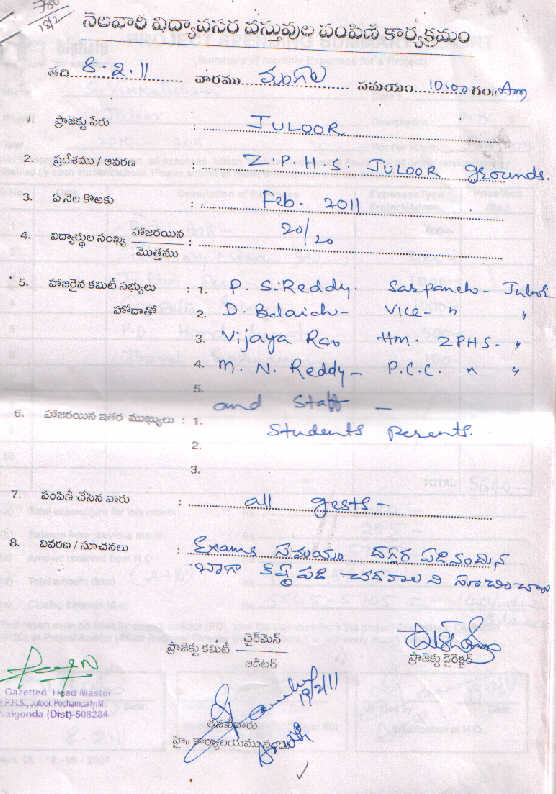 నెలవారి విద్యావసర వస్తువుల పంపిణి కార్యక్రమం
తేది 8.2.11 వారము మంగళ సమయం 10.00 గం. Am
1. ప్రాజెక్టు పేరు : JULOOR
2. ప్రదేశము / ఆవరణ : Z.P.H.S. JULOOR grounds.
3. ఏ నెల కొరకు : Feb. 2011
4. విద్యార్థుల సంఖ్య హాజరయిన / మొత్తము : 20/20
5. హాజరైన కమిటీ సభ్యులు : 1. P. S. Reddy. Sarpanch - Juloor
హోదాతో 2. D. Balaiah - Vice - " "
3. Vijaya Rao Hm. ZPHS - "
4. M. N. Reddy - P.C.C. " "
5. and Staff -
6. హాజరయిన ఇతర ముఖ్యులు : 1. Students Perents.
2.
3.
7. పంపిణీ చేసిన వారు : all gests -
8. వివరణ / సూచనలు : Exams సమయం దగ్గర పడినందున
బాగా కష్టపడి చదవాలని సూచించారు
ప్రాజెక్టు కమిటీ చైర్‌మెన్ / ఆడిటర్
ప్రాజెక్టు డైరెక్టర్
Gazetted Head Master
Z.P.H.S., Juloor, Pochampally M.
Nalgonda (Dist)-508284
19/2/11